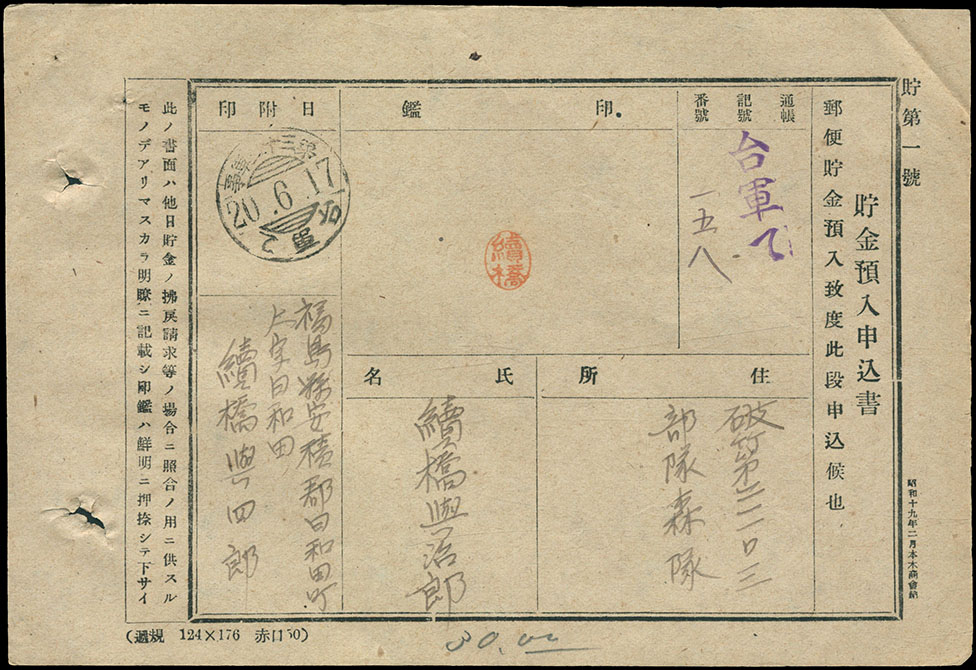 貯第一號
貯金預入申込書
郵便貯金預入致度此段申込候也
昭和十九年二月本木商會納
通帳
記號
番號
台軍て
一五八
印鑑
續橋
日附印
20.6.17
台軍
住所
破竹第二一〇三
部隊森隊
氏名
續橋與治郎
福島縣安積郡日和田町
大字日和田
續橋與四郎
此ノ書面ハ他日貯金ノ拂戾請求等ノ場合ニ照合ノ用ニ供スル
モノデアリマスカラ明瞭ニ記載シ印鑑ハ鮮明ニ押捺シテ下サイ
(遞規 124×176 赤口50)
30.00